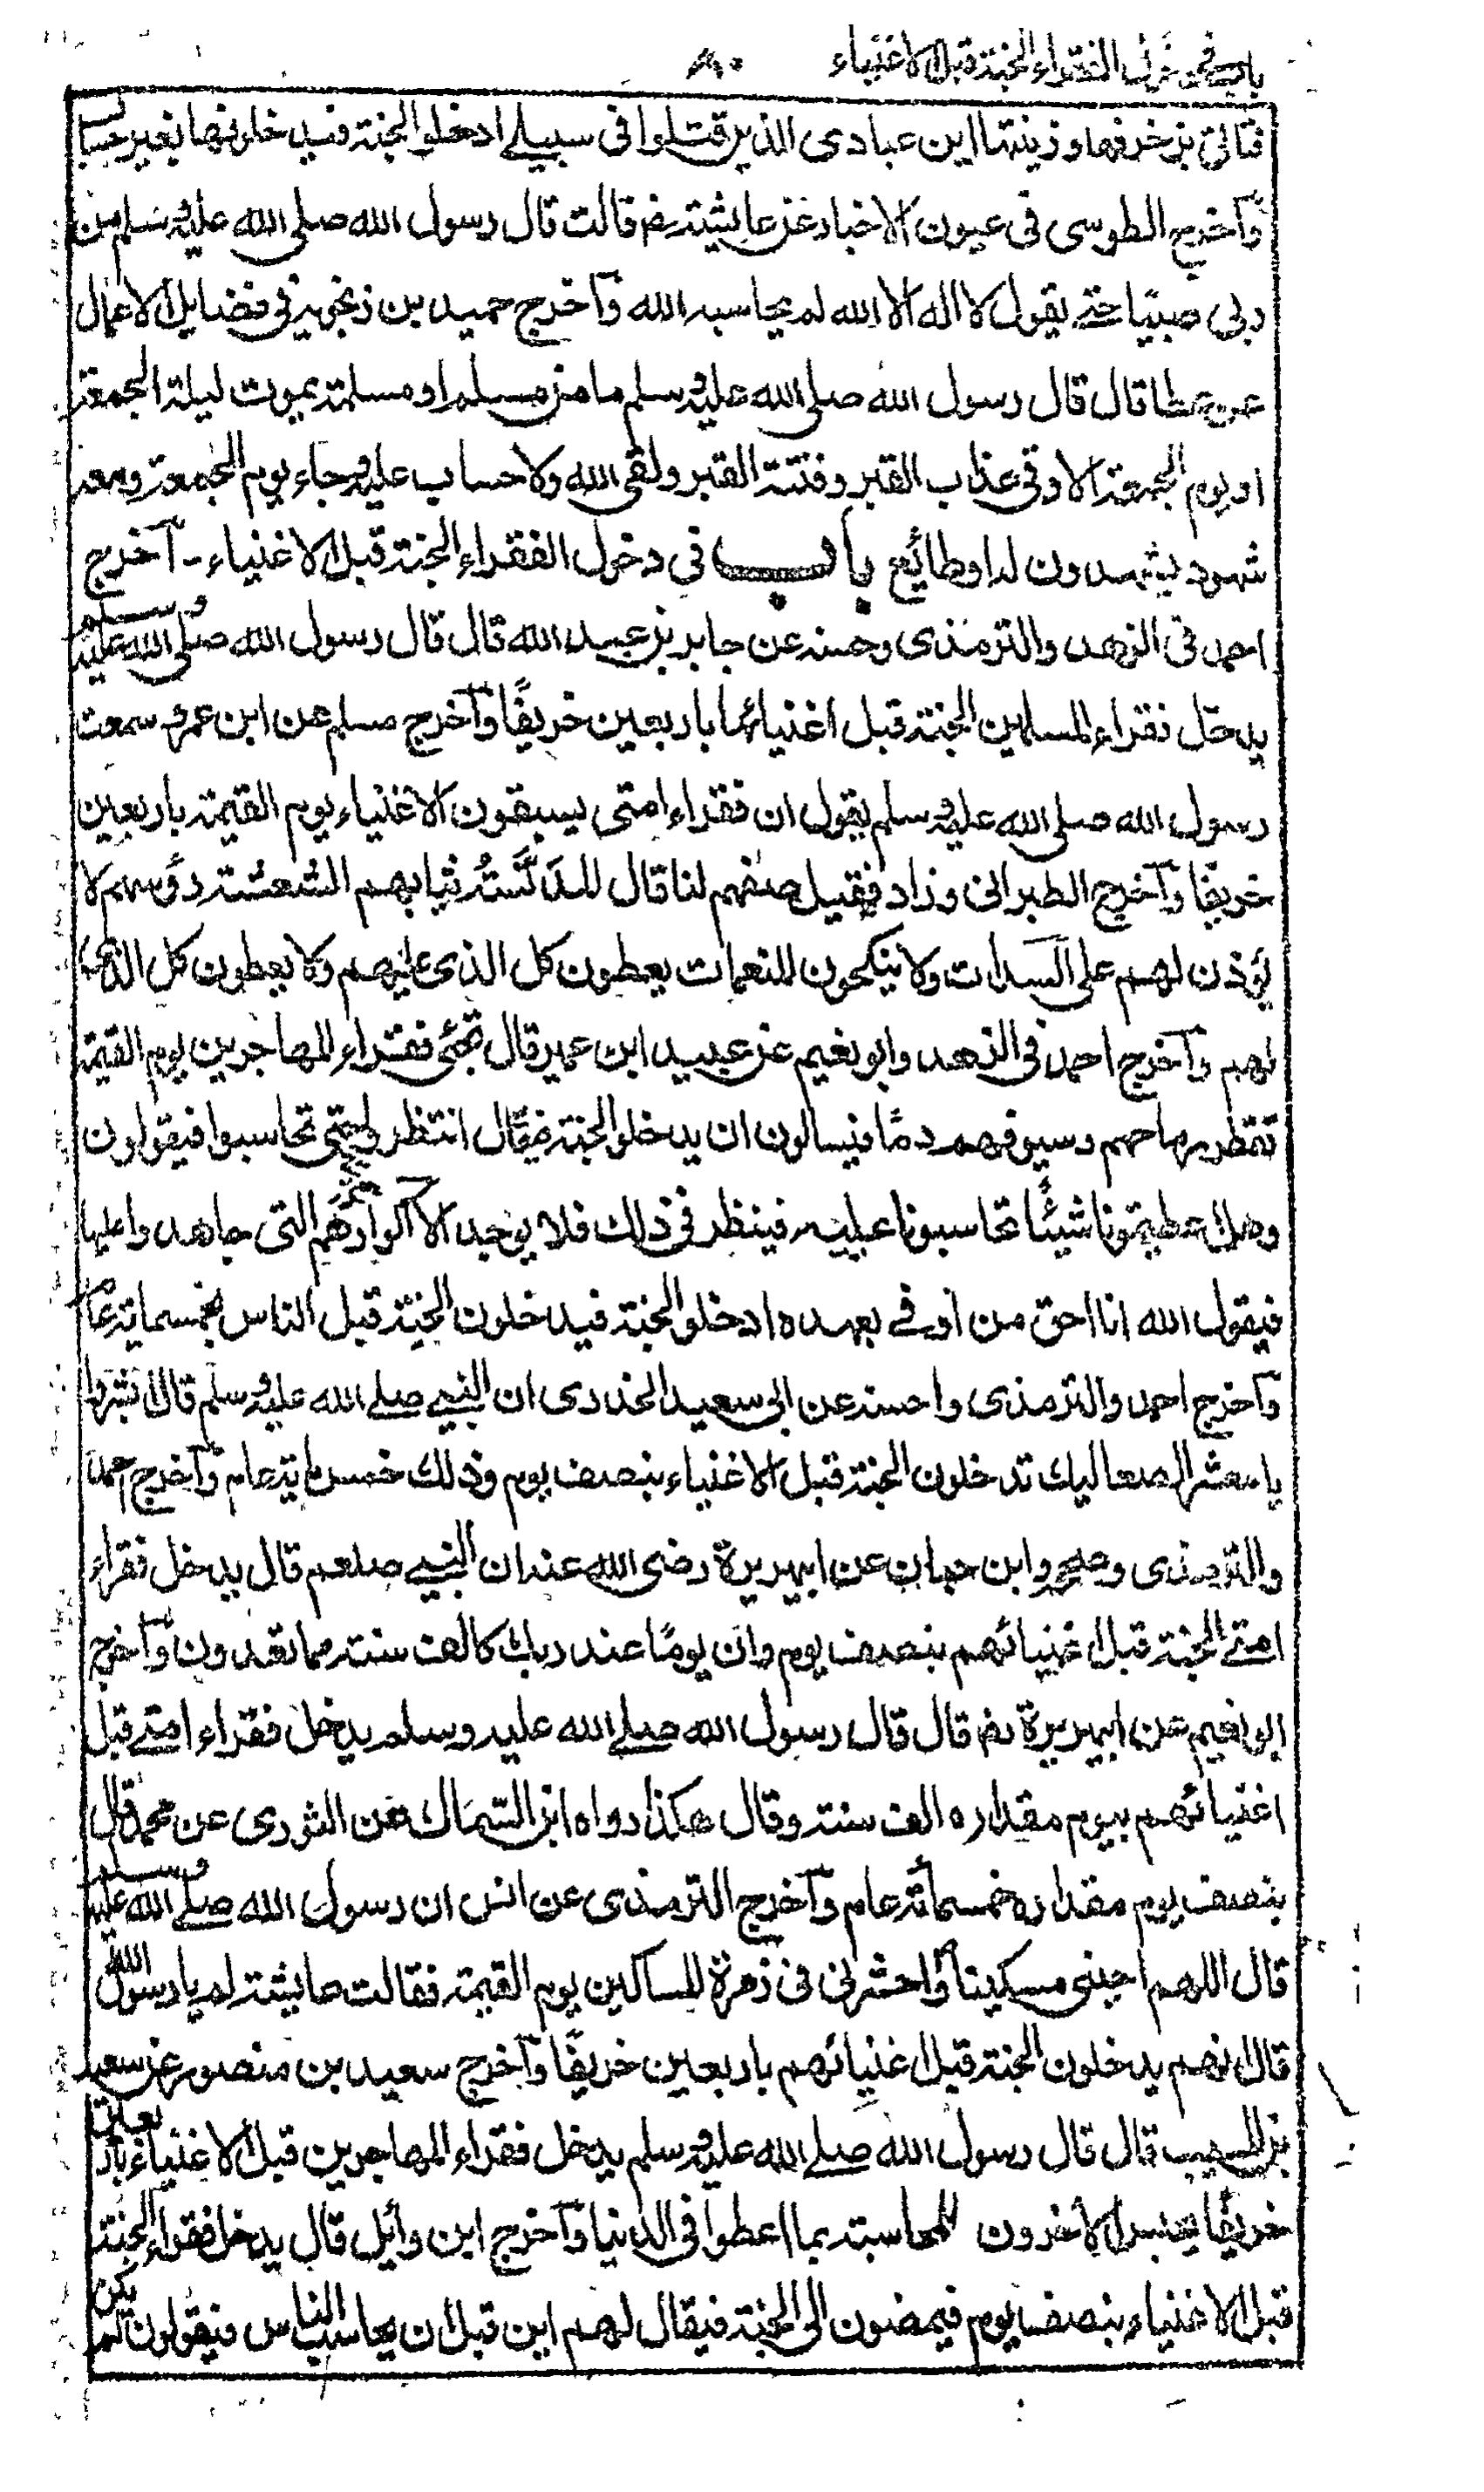 باب في دخول الفقراء الجنة قبل الاغنياء
فتاتى بزخرفها وزينتها اين عبادى الذين قتلوا فى سبيلے ادخلوا الجنة فيدخلونها بغير حساب
وآخرج الطوسى فى عيون الاخبار عن عايشة رضـ قالت قال رسول الله صلى الله عليه وسلم من
ربى صبيًا حتے يقول لا اله الا الله لم يحاسبه الله وآخرج حميد بن زنجويه فى فضايل الاعمال
عن عطا قال قال رسول الله صلى الله عليه وسلم ما من مسلم او مسلمة يموت ليلة الجمعة
او يوم الجمعة الا وقى عذاب القبر وفتنة القبر ولقى الله ولا حساب عليه وجاء يوم الجمعة ومعه
شهود يشهدون له او طائع باب فى دخول الفقراء الجنة قبل الاغنياء - آخرج
احمد فى الزهد والترمذى وحسنه عن جابر بن عبد الله قال قال رسول الله صلى الله عليه وسلم
يدخل فقراء المسلمين الجنة قبل اغنيائها باربعين خريفًا وآخرج مسلم عن ابن عمرو سمعت
رسول الله صلى الله عليه وسلم يقول ان فقراء امتى يسبقون الاغنياء يوم القيمة باربعين
خريفًا وآخرج الطبرانى وزاد فقيل صفهم لنا قال للدنسة ثيابهم الشعثة رؤسهم لا
يؤذن لهم على السدات ولا ينكحون المنعمات يعطون كل الذى عليهم ولا يعطون كل الذى
لهم وآخرج احمد فى الزهد وابو نعيم عن عبيد ابن عمير قال تجئى فقراء المهاجرين يوم القيمة
تقطر رماحهم وسيوفهم دمًا فيسالون ان يدخلوا الجنة فيقال انتظروا حتى تحاسبوا فيقولون
وهل عطيتمونا شيئًا تحاسبونا عليه فينظر فى ذلك فلا يوجد الا اكوارهم التى جاهدوا عليها
فيقول الله انا احق من اوفے بعهده ادخلوا الجنة فيدخلون الجنة قبل الناس بخمسماية عام
وآخرج احمد والترمذى واحسنه عن ابى سعيد الخدرى ان النبے صلے الله عليه وسلم قال ابشروا
يا معشر الصعاليك تدخلون الجنة قبل الاغنياء بنصف يوم وذلك خمس ماية عام وآخرج احمد
والترمذى وصححه وابن حبان عن ابيهريرة رضى الله عنه ان النبے صلعم قال يدخل فقراء
امتے الجنة قبل اغنيائهم بنصف يوم وان يومًا عند ربك كالف سنة مما تعدون وآخرج
ابو نعيم عن ابيهريرة رضـ قال قال رسول الله صلے الله عليه وسلم يدخل فقراء امتے قبل
اغنيائهم بيوم مقداره الف سنة وقال هكذا رواه ابن السّماك عن الثورى عن محمد قال
بنصف يوم مقداره خمسمائة عام وآخرج الترمذى عن انس ان رسول الله صلے الله عليه وسلم
قال اللهم احينى مسكينا واحشرنى فى زمرة المساكين يوم القيمة فقالت عايشة لم يا رسول الله
قال انهم يدخلون الجنة قبل اغنيائهم باربعين خريفًا وآخرج سعيد بن منصور عن سعيد
بن المسيب قال قال رسول الله صلے الله عليه وسلم يدخل فقراء المهاجرين قبل الاغنياء باربعين
خريفًا يحبس الآخرون للمحاسبة بما اعطوا فى الدنيا وآخرج ابن وائل قال يدخل فقراء الجنة
قبل الاغنياء بنصف يوم فيمضون الى الجنة فيقال لهم اين قبل ان يحاسب الناس فيقولون لم يكن